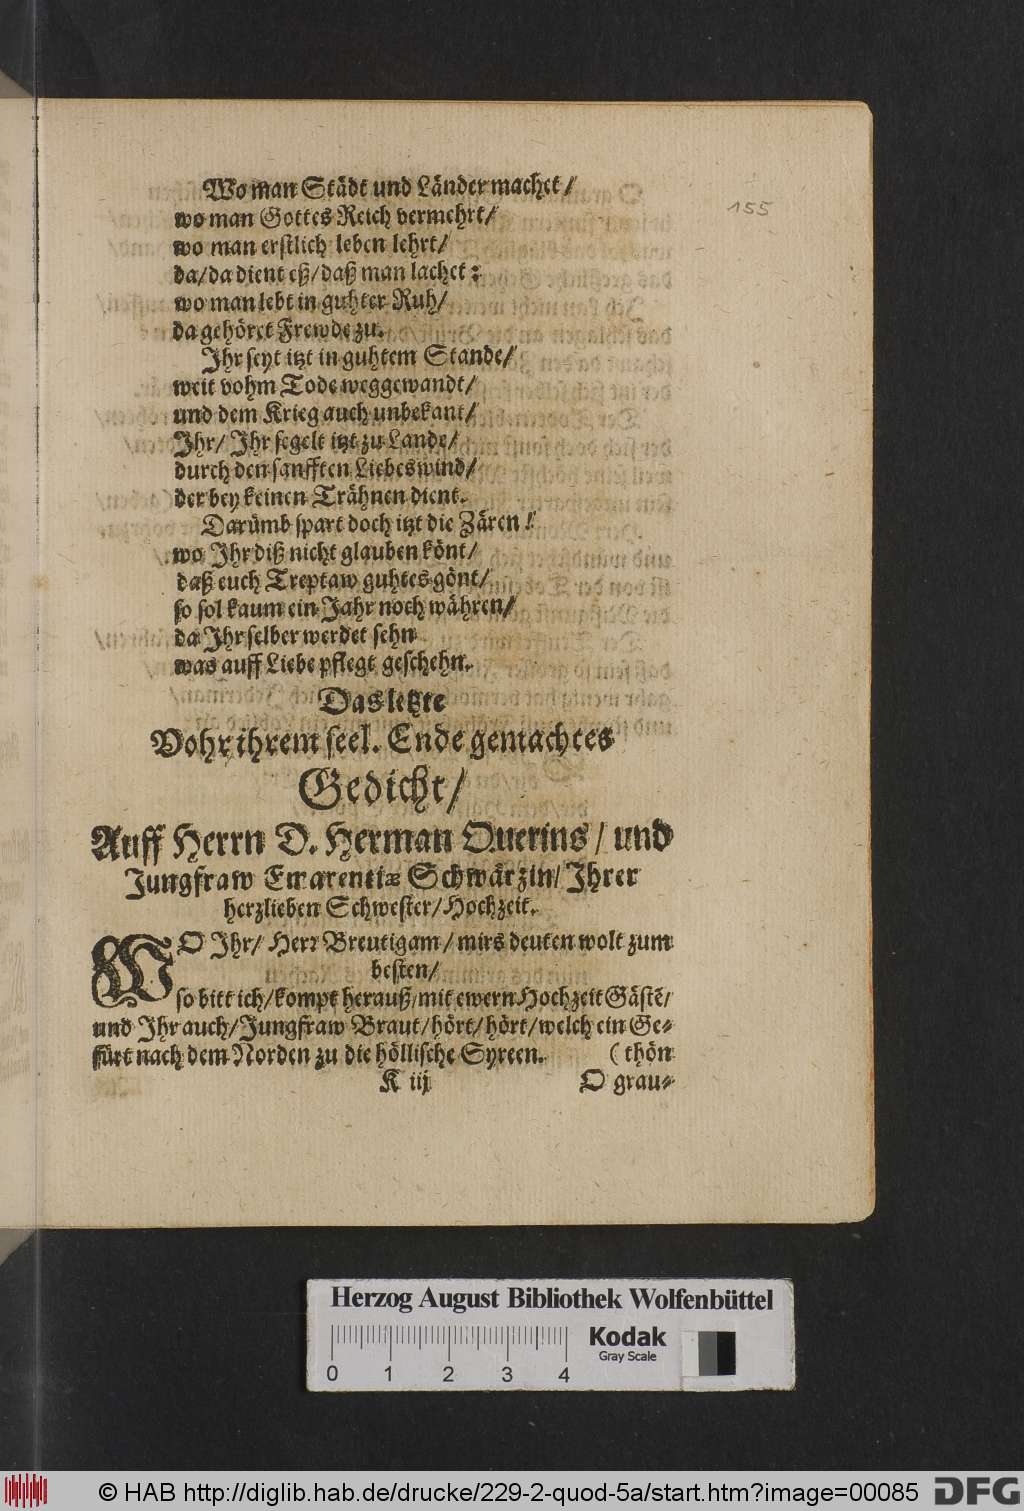 155
Wo man Städt und Länder machet /
wo man Gottes Reich vermehrt /
wo man erstlich leben lehrt /
da / da dient eß / daß man lachet ;
wo man lebt in guhter Ruh /
da gehöret Frewde zu.
Ihr seyt itzt in guhtem Stande /
weit vohm Tode weggewandt /
und dem Krieg auch unbekant /
Ihr / Ihr segelt itzt zu Lande /
durch den sanfften Liebeswind /
der bey keinen Trähnen dient.
Darümb spart doch itzt die Zären !
wo Ihr diß nicht glauben könt /
daß euch Treptaw guhtes gönt /
so sol kaum ein Jahr noch währen /
da Ihr selber werdet sehn
was auff Liebe pflegt geschehn.
Das letzte
Vohr ihrem seel. Ende gemachtes
Gedicht /
Auff Herrn D. Herman Querins / und
Jungfraw Emarentiæ Schwärzin / Ihrer
herzlieben Schwester / Hochzeit.
WO Ihr / Herr Breutigam / mirs deuten wolt zum
besten /
so bitt ich / kompt herauß / mit ewern Hochzeit Gästē /
und Ihr auch / Jungfraw Braut / hört / hört / welch ein Ge-
fürt nach dem Norden zu die höllische Syreen. ( thön
K iij O grau-
Herzog August Bibliothek Wolfenbüttel
Kodak
Gray Scale
0 1 2 3 4
© HAB http://diglib.hab.de/drucke/229-2-quod-5a/start.htm?image=00085
DFG